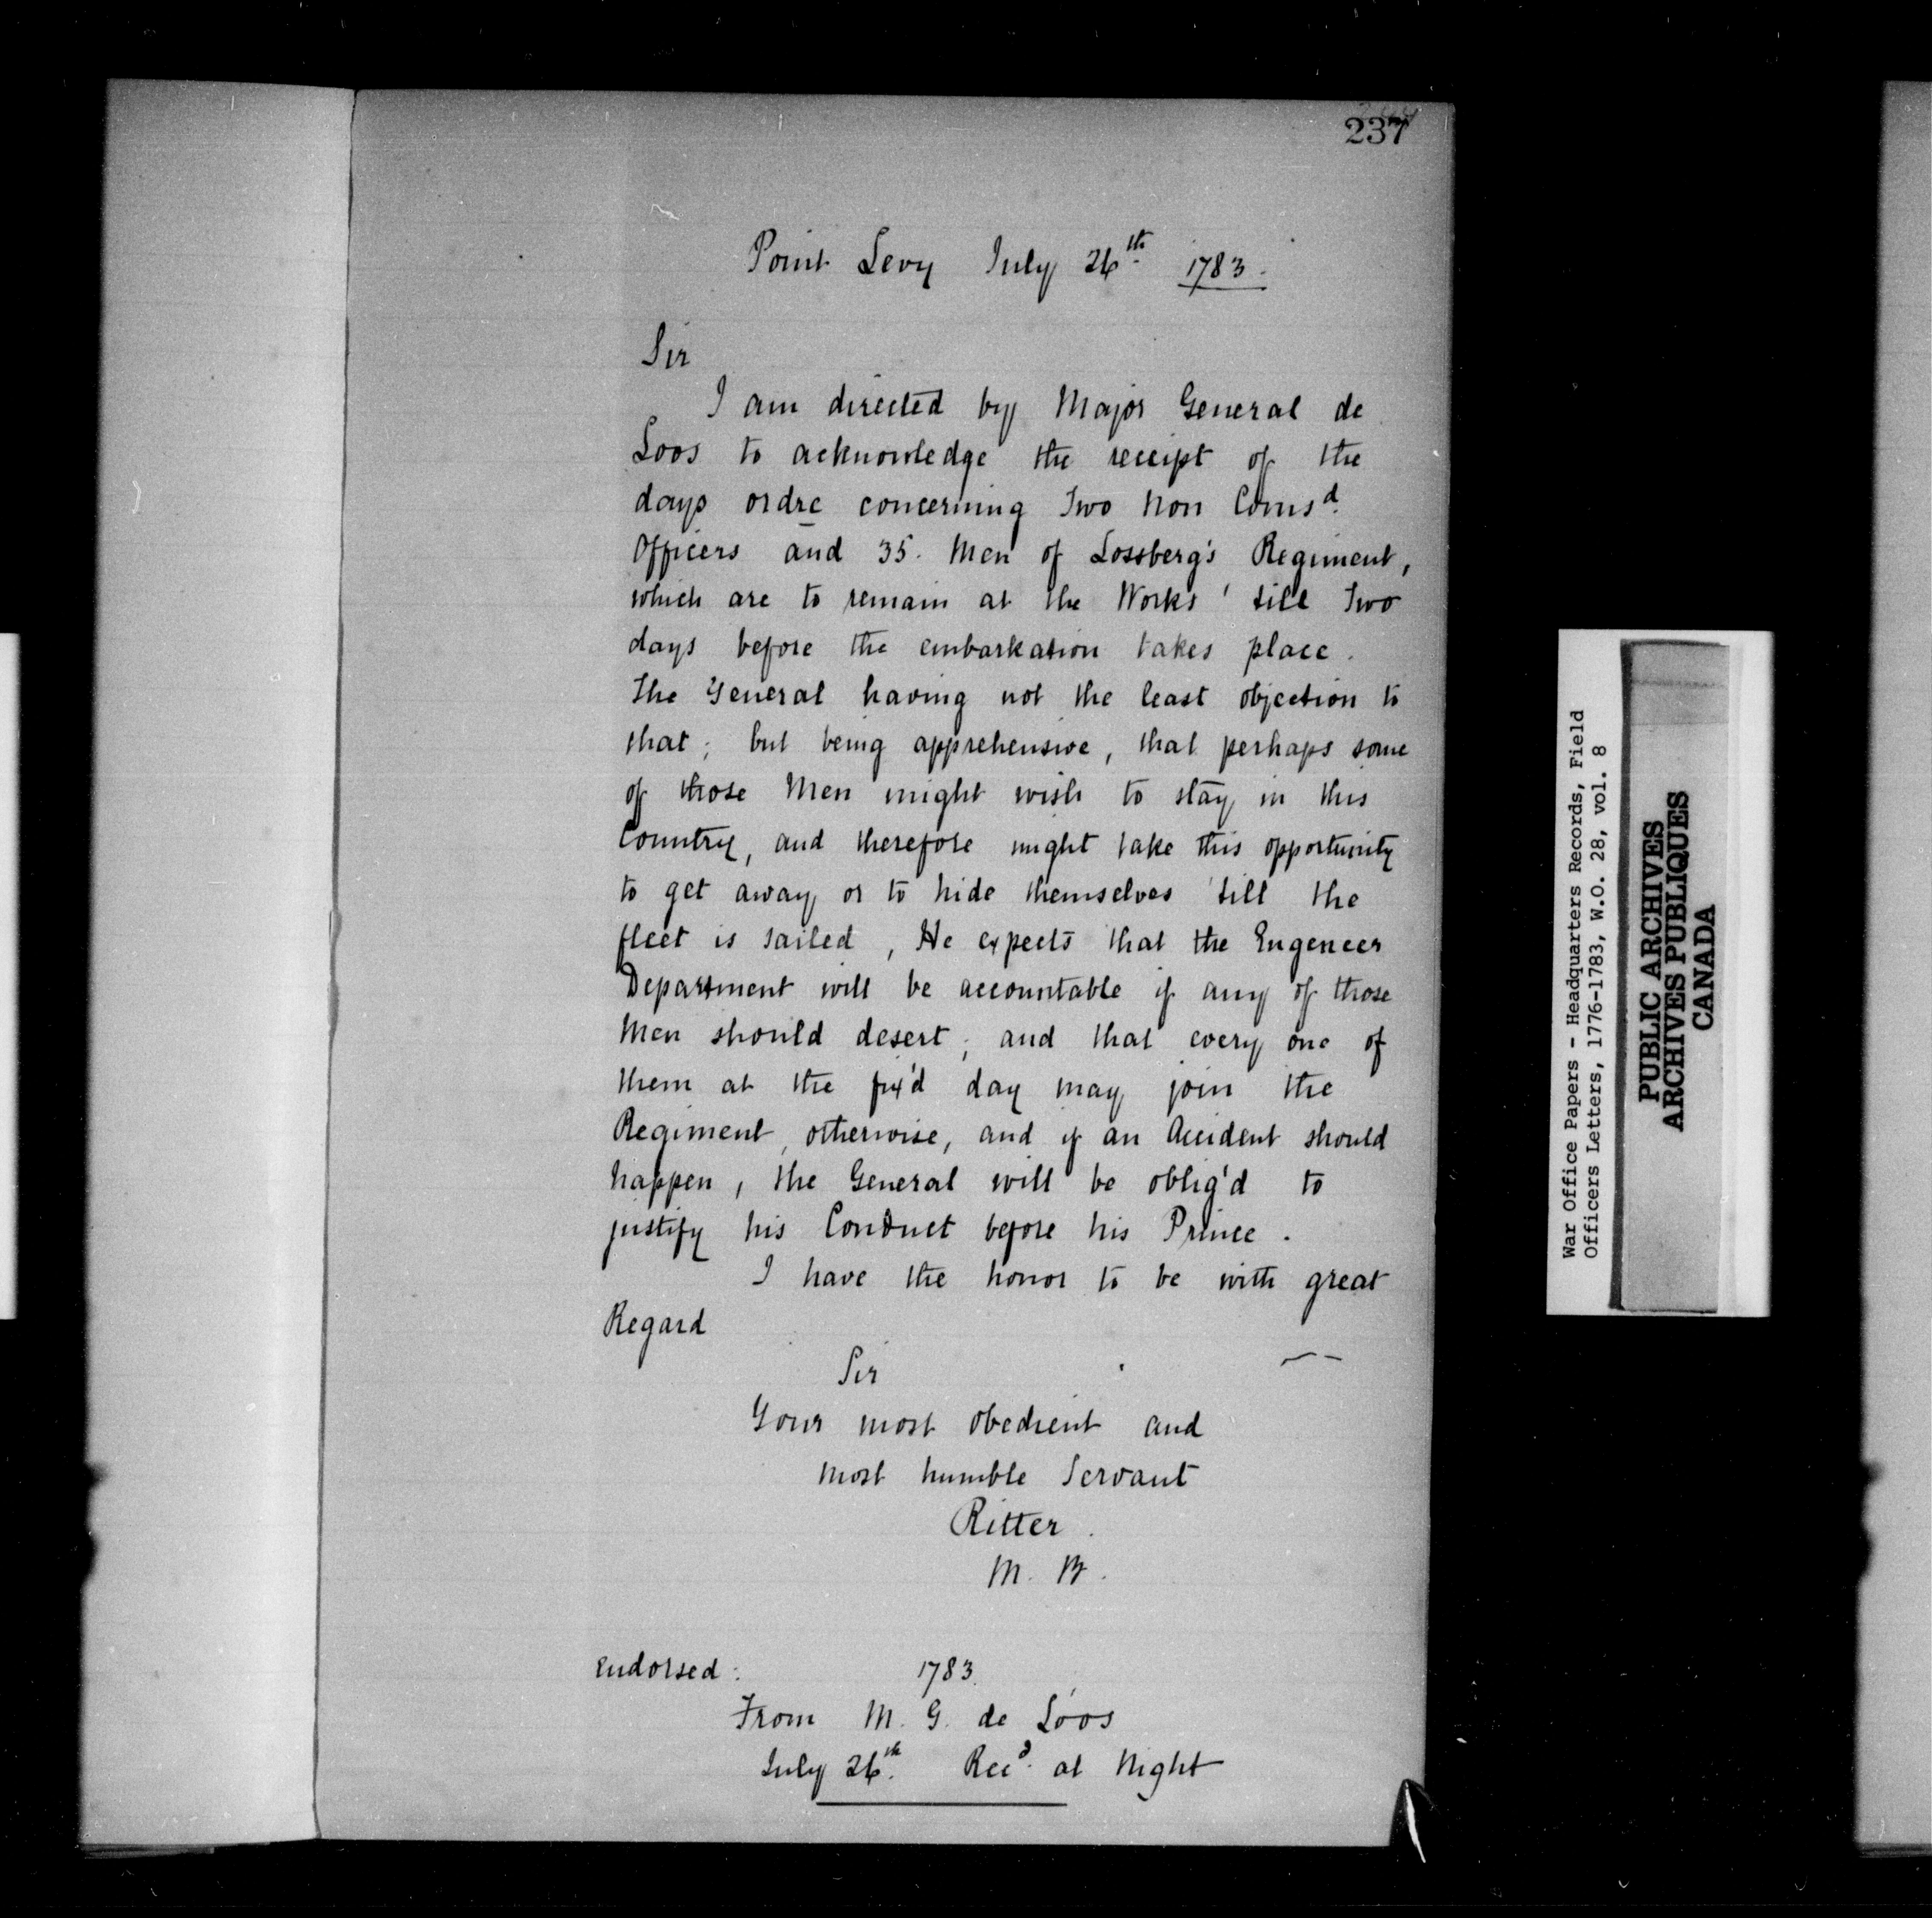 237
Point Levy July 26th. 1783.
Sir
I am directed by Major General de
Loos to acknowledge the receipt of the
days ordre concerning Two Non Comsd.
Officers and 35. Men of Lossberg's Regiment,
which are to remain at the Works 'till Two
days before the embarkation takes place.
The General having not the least objection to
that; but being apprehensive, that perhaps some
of those Men might wish to stay in this
Country, and therefore might take this opportunity
to get away or to hide themselves 'till the
fleet is sailed, He expects that the Engeneer
Department will be accountable if any of those
Men should desert; and that every one of
them at the fix'd day may join the
Regiment, otherwise, and if an Accident should
happen, the General will be oblig'd to
justify his Conduct before his Prince.
I have the honor to be with great
Regard
Sir
Your most obedient and
most humble Servant
Ritter.
M. B.
Endorsed: 1783.
From M. G. de Loos
July 26th. Recd. at Night
War Office Papers - Headquarters Records, Field
Officers Letters, 1776-1783, W.O. 28, vol. 8
PUBLIC ARCHIVES
ARCHIVES PUBLIQUES
CANADA